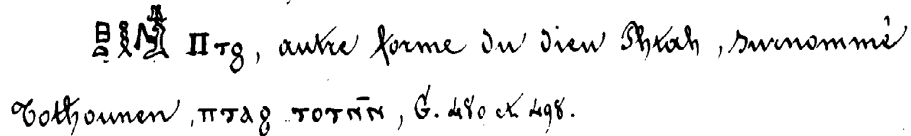 𓊪𓏏𓎛𓁰 Ⲡⲧϩ, autre forme du dieu Phtah, surnommé
Tothounen, ⲡⲧⲁϩ ⲧⲟⲧⲛ̄ⲛ, G. 480 et 498.